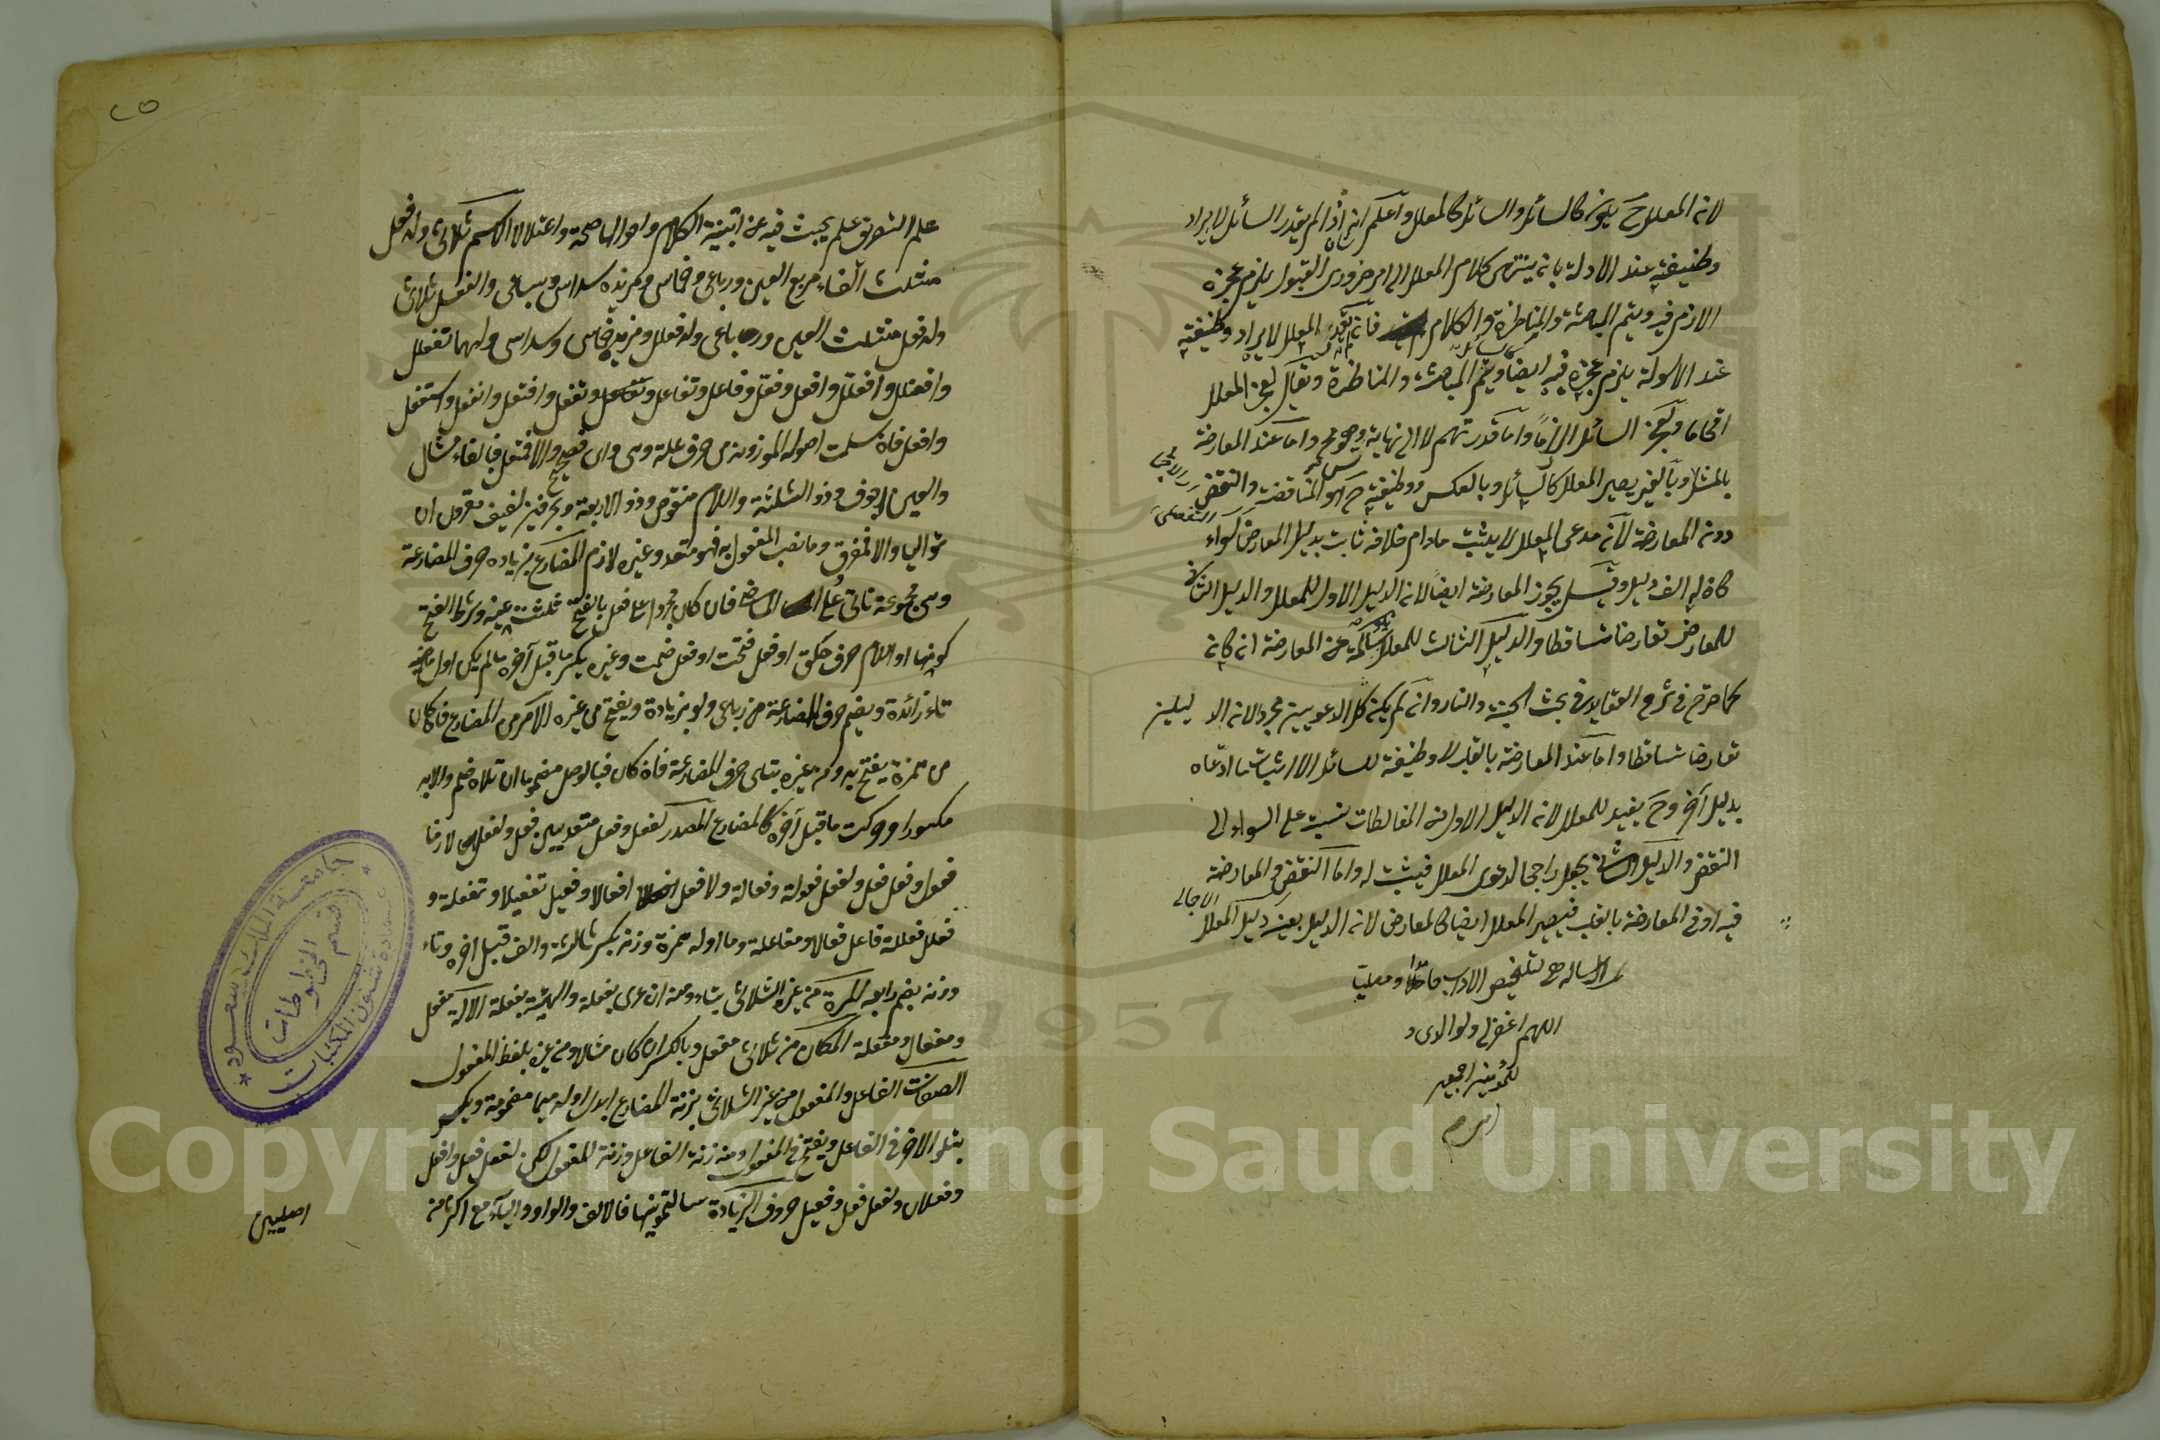 لانه المعلل ح يكون كالسائل والسائل كالمعلل واعلم انه اذا لم يقدر السائل لايراد
وظيفته عند الادلة بانه ينتهى كلام المعلل الى امر ضرورى القبول يلزم عجزه
الازم فيه ويتم المباحثة والمناظرة والكلام فانه المعلل لايراد وظيفته
عند الاسولة يلزم عجزه فيه ايضا ويتم المباحثة والمناظرة ويقال لعجز المعلل
افحاما ولعجز السائل الزاما واما قدرتهم لا الى نهاية واما عند المعارضة
بالمثل وبالغير يصير المعلل كالسائل وبالعكس ووظيفته ح هو المناقضة والنقض
دونه المعارضة لانه مدعى المعلل لا يثبت مادام خلافه ثابت بدليل المعارض سواء
كانه له الف دليل وقيل يجوز المعارضة ايضا لانه الدليل الاول للمعلل والدليل الثانى
للمعارض تعارضا تساقطا والدليل الثالث للمعلل سالمة عن المعارضة انه كانه
كما صرح فى شرح العقايد فى بحث الجنة والنار وانه لم يكنه كل الدعويين مجرد لانه الا ليلين
تعارضا تساقطا واما عند المعارضة بالقلب لا وظيفة للسائل الا اثبات ما ادعاه
بدليل آخر وح يفيد للمعلل لانه الدليل الاول منه المغالطات نسبته على السواء الى
النقض والدليل الثانى يجعل راجحا لدعوى المعلل فيثبت له واما النقض والمعارضة
فيه او فى المعارضة بالقلب فيصير المعلل ايضا كالمعارض لانه الدليل بعينه دليل المعلل
الاجمالى
الرسالة هى تلخيص الاداب حامدا ومصليا
اللهم اغفر لى ولوالدى و
للمؤمنين اجمعين
٢٥
علم التصريف علم يبحث فيه عن ابنية الكلام واحوالها صحة واعتلالا الاسم ثلاثى وله فعل
مثلث الفاء مربع العين ورباعى وخماسى ومزيده سداسى وسباعى والفعل ثلاثى
وله فعل مثلث العين ورباعى وله فعلل ومزيده خماسى وسداسى ولهما تفعلل
وافعنلل وافعلل وافعل وفعل وفاعل وتفاعل وتفعل وافتعل وانفعل واستفعل
وافعل فان سلمت اصوله الموزونة من حرف علة وهى واى فصحيح والا فمعتل فبالفاء مثال
والعين اجوف وذو الثلثة واللام منقوص وذو الاربعة وبحرفين لفيف مقرون ان
تواليا والا فمفرق وما نصب المفعول به فهو متعد وغيره لازم المضارع بزيادة حرف المضارعة
وهى مجموعة نأتى على الماضى فان كان مجردا على فعل بالفتح ثلثت عينه وشرط الفتح
كونها او اللام حرف حلق او فعل فتحت او فعل ضمت وغيره يكسر ما قبل آخره ما لم يكن اول ماضيه
تاء زائدة ويضم حرف المضارعة من رباعى ولو بزيادة ويفتح من غيره الامر من المضارع فان كان
من همزة يفتتح به ومن غيره بتالى حرف المضارعة فان كان فبالوصل مضموما ان تلاه ضم والا به
مكسورا وحركت ما قبل آخره كالمضارع المصدر لفعل وفعل متعديين فعل ولفعل لازما
فعول وفعل فعل ولفعل فعولة وفعالة ولافعل افعالا وفعل تفعيلا وتفعلة و
فعلل فعللة فاعل فعالا ومفاعلة وما اوله همزة وزنه بكسر ثالثه والف قبل آخره وتاء
وزنه بضم رابعه المرة من غير الثلاثى بتاء ومنه ان عرى بفعلة والهيئة بفعلة الآلة مفعل
ومفعال ومفعلة المكان من ثلاثى مفعل وبالكسر ان كان مثالا ومن غيره بلفظ المفعول
الصفات الفاعل والمفعول من غير الثلاثى بزنة المضارع ابدل اوله ميما مضمومة ويكسر
متلو الاخر فى الفاعل ويفتح فى المفعول ومنه زنة الفاعل وزنة المفعول لكن لفعل فعل وافعل
وفعلان ولفعل فعل وفعيل حروف الزيادة سألتمونيها فالالف والواو والياء مع اكثر من
اصليين
جامعة الملك سعود
عمادة شئون المكتبات
قسم المخطوطات
1957
Copyright © King Saud University